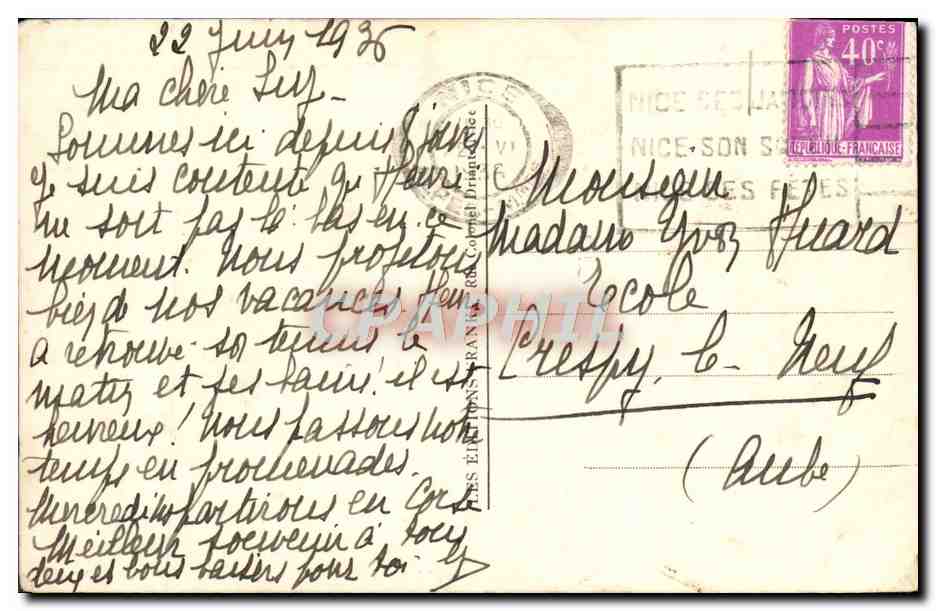 22 Juin 1936
Ma chère Suz-
Sommes ici depuis 8 jours
Je suis contente q. Henri
ne soit pas là-bas en ce
moment. Nous profitons
bien de nos vacances. Henri
a retrouvé son tennis le
matin et ses bains! il est
heureux! Nous passons notre
temps en promenades.
Mercredi ns partirons en Corse
Meilleur souvenir à tous
deux et bons baisers pour toi
LES ÉDITIONS FRANK, Rue Colonel Driant, Nice
NICE
NICE SES JARDINS
NICE SON SOLEIL
NICE SES FÊTES
POSTES
40c
REPUBLIQUE-FRANCAISE
Monsieur
Madame Yvon Huard
Ecole
Crespy le Neuf
(Aube)
CPAPHIL